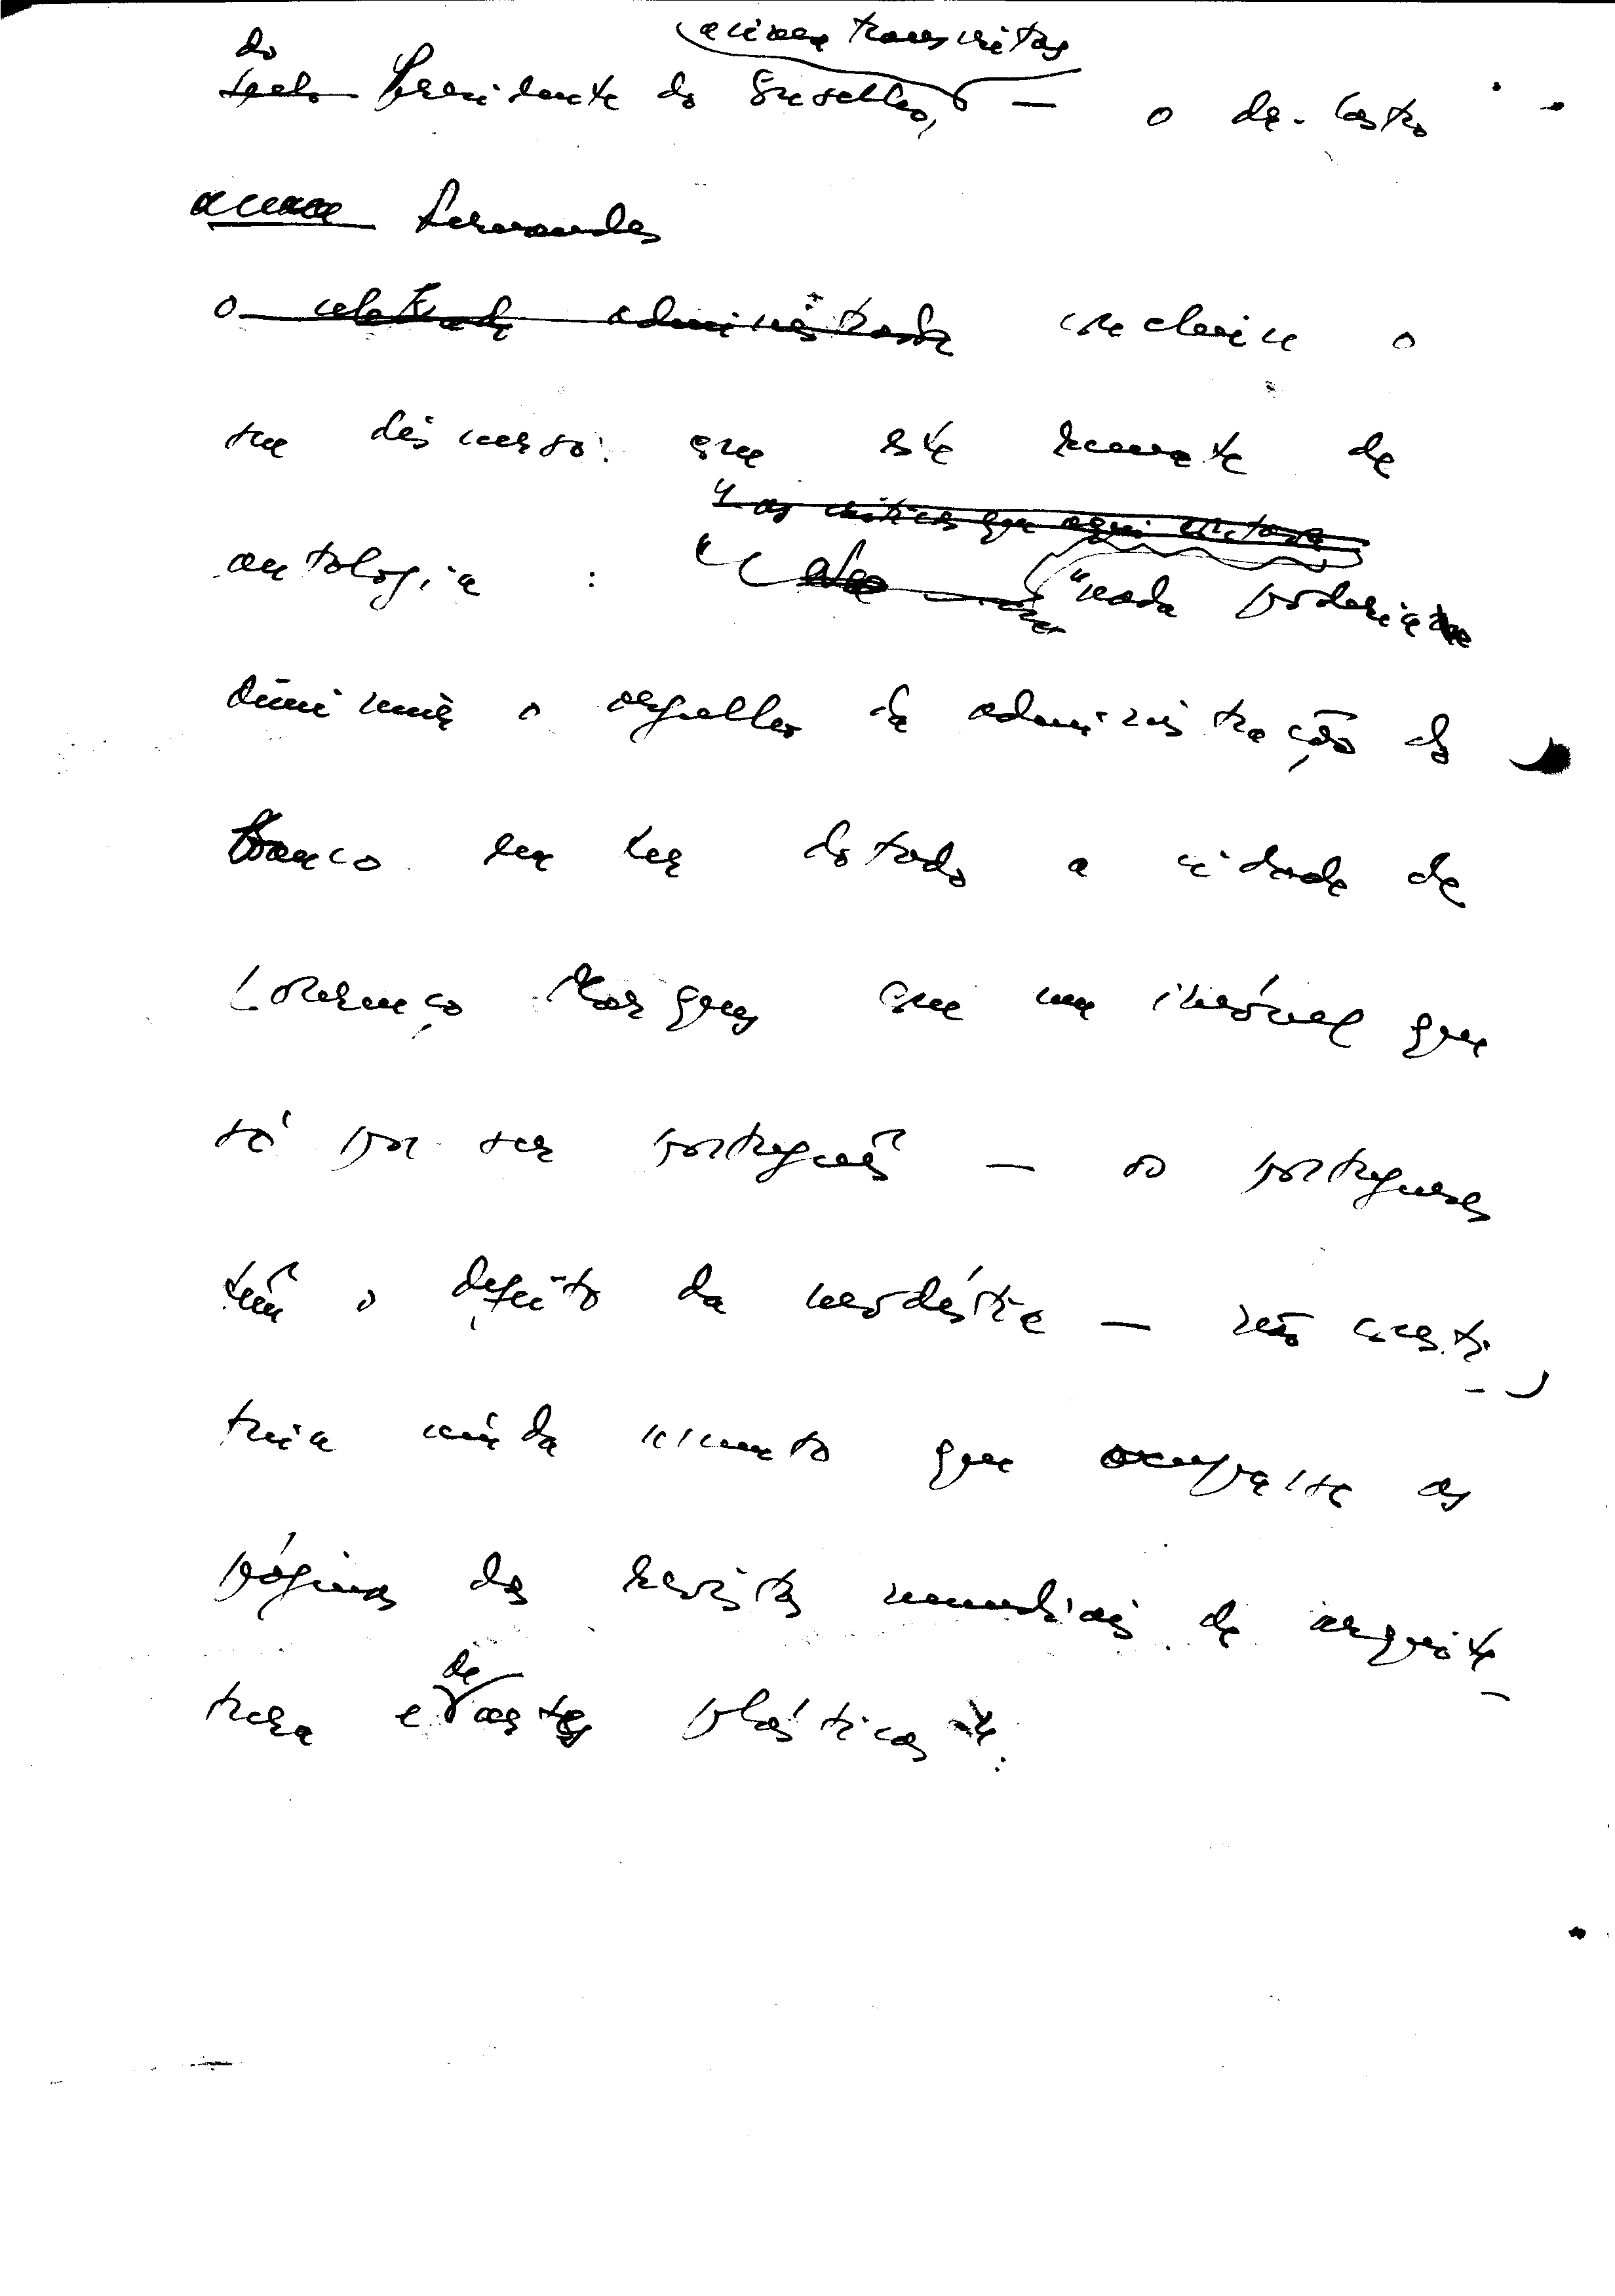 acima transcritas
do
pelo Presidente do Conselho, — o dr. Castro
acaca Fernandes
o celebrado administrador conclui o
seu discurso: com este remate de
antologia : "nada poderia
diminuir o orgulho da administração do
Banco em ter dotado a cidade de
Lourenço Marques com um imóvel que
só por ser português — os portugueses
têm o defeito da modéstia — não consti-
tuia ainda assunto que ocupasse as
páginas das revistas mundiais de arquite-
de
tura e artes plásticas":